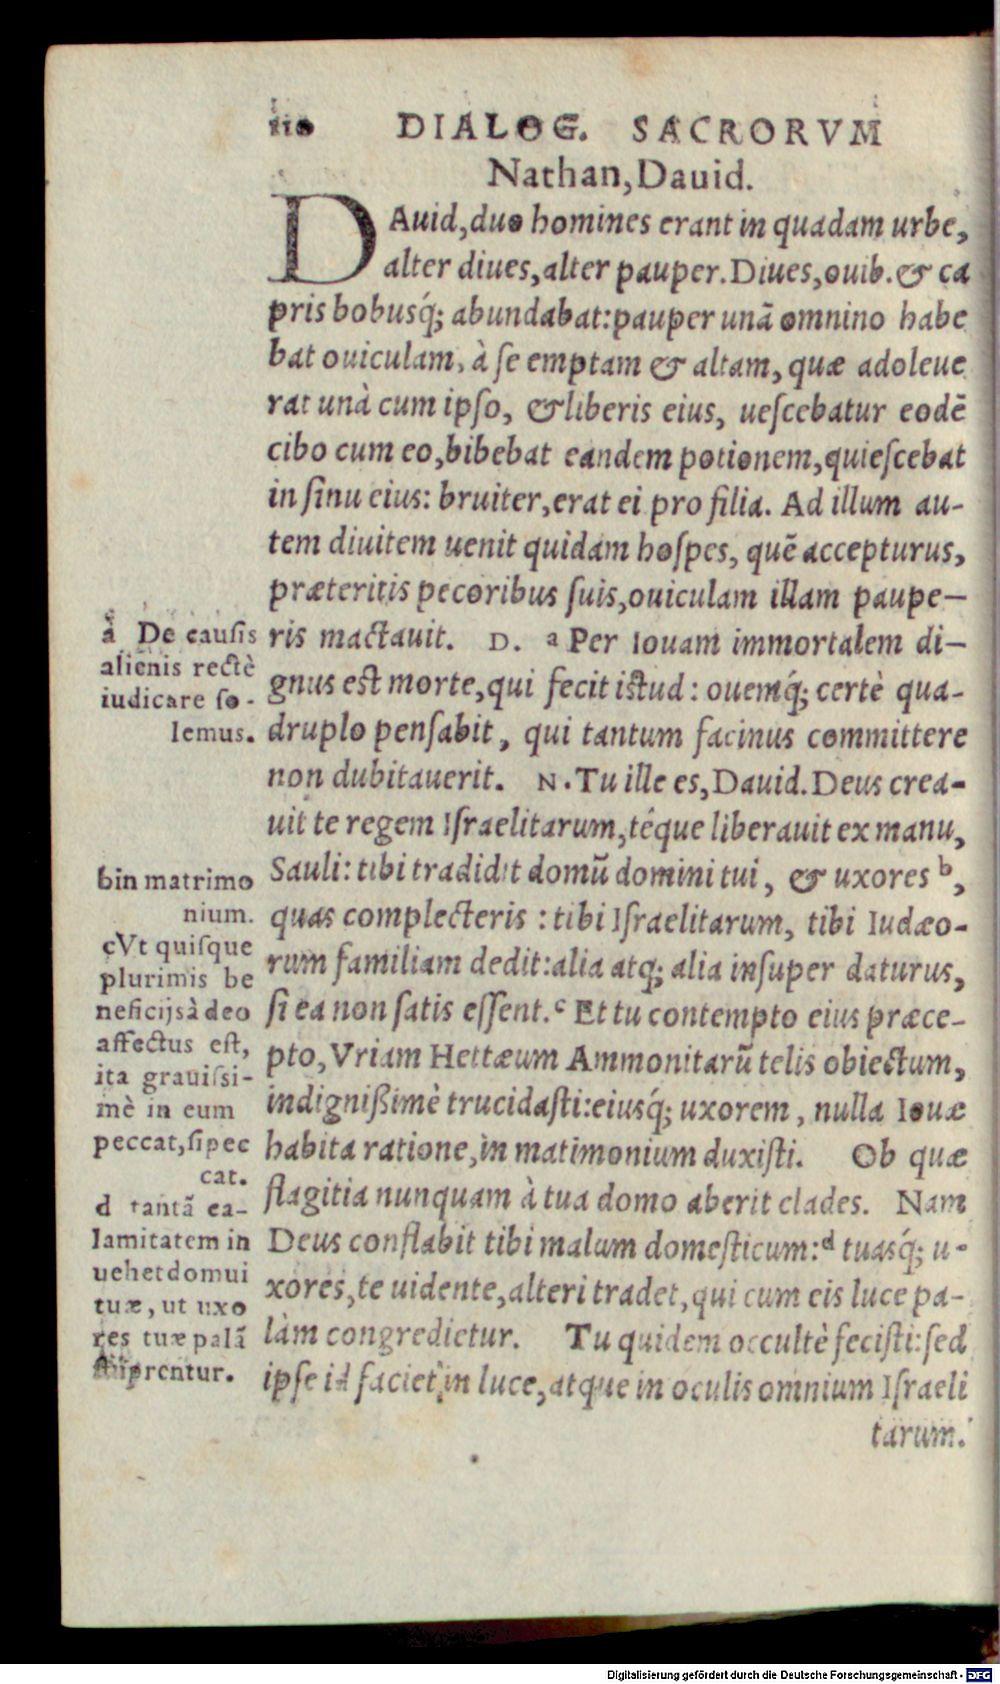 110 DIALOG. SACRORVM
Nathan, Dauid.
DAuid, duo homines erant in quadam urbe,
alter diues, alter pauper. Diues, ouib. & ca
pris bobusq́; abundabat: pauper unã omnino habe
bat ouiculam, à se emptam & altam, quæ adoleue
rat unà cum ipso, & liberis eius, uescebatur eodẽ
cibo cum eo, bibebat eandem potionem, quiescebat
in sinu eius: bruiter, erat ei pro filia. Ad illum au-
tem diuitem uenit quidam hospes, quẽ accepturus,
præteritis pecoribus suis, ouiculam illam paupe-
ris mactauit. D. ᵃ Per Iouam immortalem di-
gnus est morte, qui fecit istud: ouemq́; certè qua-
druplo pensabit, qui tantum facinus committere
non dubitauerit. N. Tu ille es, Dauid. Deus crea-
uit te regem Israelitarum, téque liberauit ex manu,
Sauli: tibi tradidit domũ domini tui, & uxores ᵇ,
quas complecteris: tibi Israelitarum, tibi Iudæo-
rum familiam dedit: alia atq; alia insuper daturus,
si ea non satis essent. ᶜ Et tu contempto eius præce-
pto, Vriam Hettæum Ammonitarũ telis obiectum,
indignißimè trucidasti: eiusq́; uxorem, nulla Iouæ
habita ratione, in matimonium duxisti. Ob quæ
flagitia nunquam à tua domo aberit clades. Nam
Deus conflabit tibi malum domesticum: ᵈ tuasq́; u-
xores, te uidente, alteri tradet, qui cum eis luce pa-
làm congredietur. Tu quidem occultè fecisti: sed
ipse id faciet in luce, atque in oculis omnium Israeli
tarum.
a De causis
alienis rectè
iudicare so-
lemus.
b in matrimo
nium.
c Vt quisque
plurimis be
neficijs à deo
affectus est,
ita grauissi-
mè in eum
peccat, si pec
cat.
d tantã ca-
lamitatem in
uehet domui
tuæ, ut uxo
res tuæ palã
stuprentur.
Digitalisierung gefördert durch die Deutsche Forschungsgemeinschaft - DFG